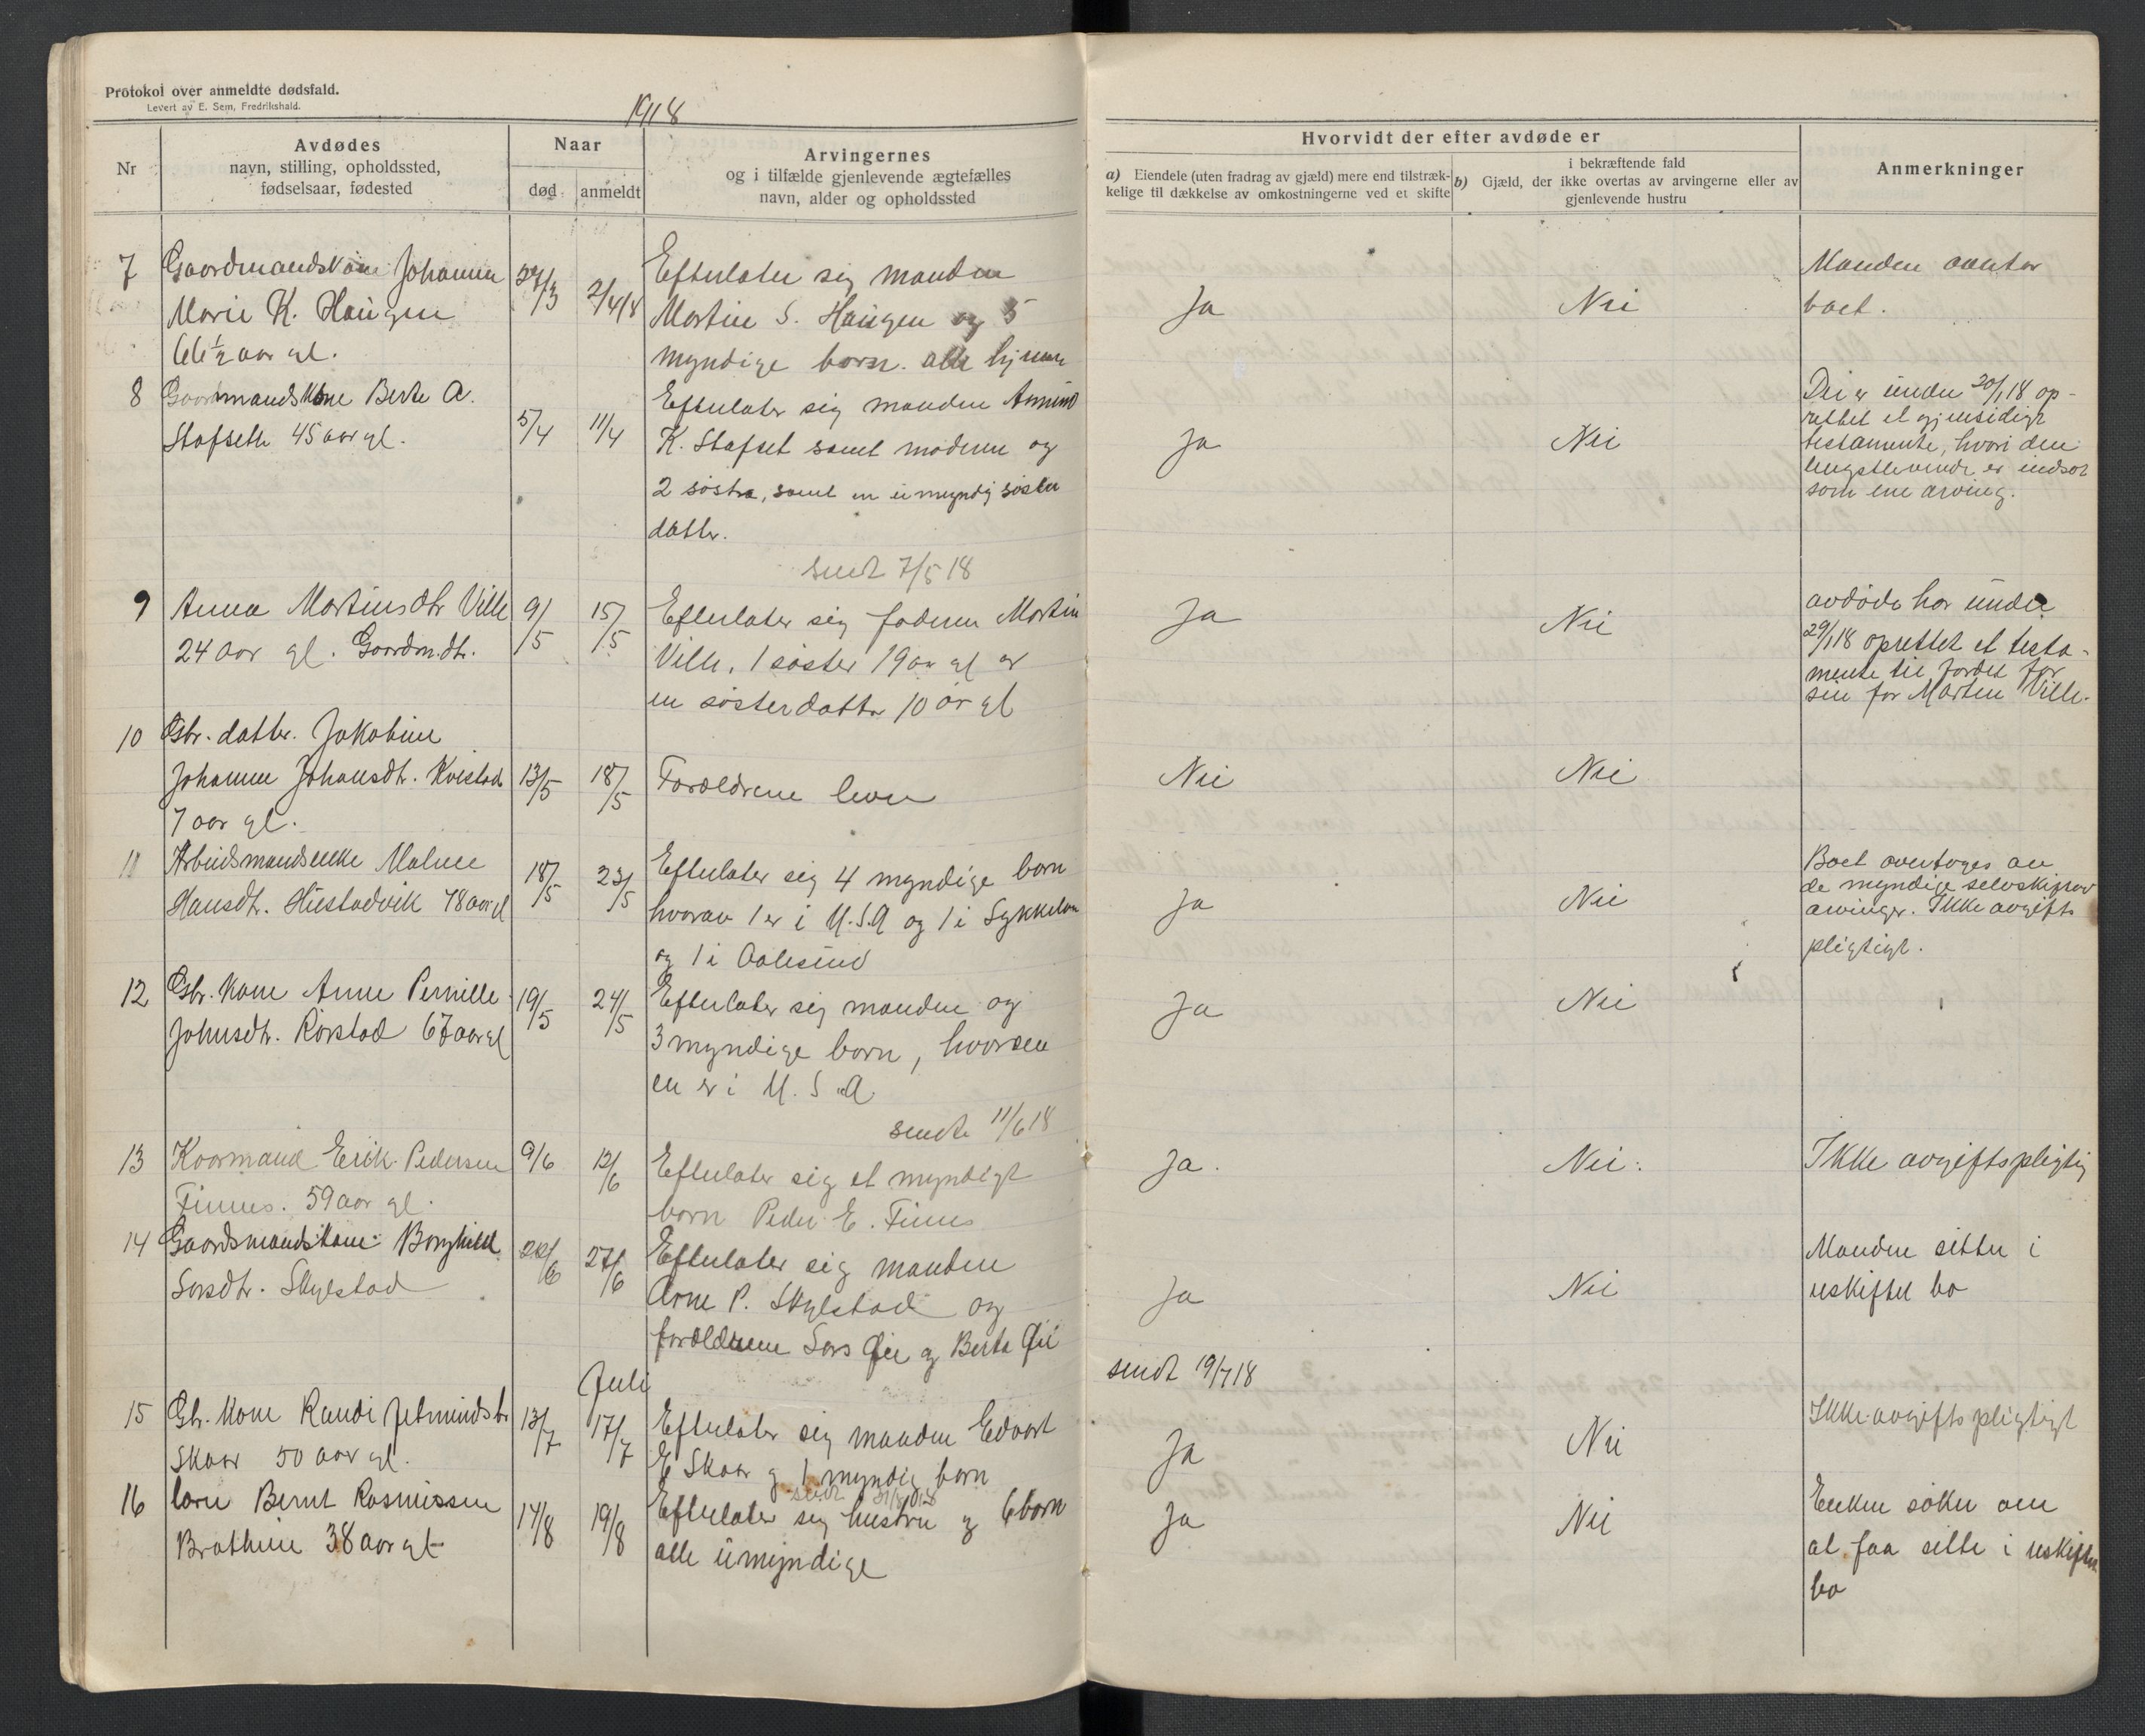 Protokol over anmeldte dødsfald.
Levert av E. Sem, Fredrikshald.
1918
Nr
Avdødes
navn, stilling, opholdssted,
fødselsaar, fødested
Naar
død
anmeldt
Arvingernes
og i tilfælde gjenlevende ægtefælles
navn, alder og opholdssted
Hvorvidt der efter avdøde er
a) Eiendele (uten fradrag av gjæld) mere end tilstræk-
kelige til dækkelse av omkostningerne ved et skifte
i bekræftende fald
b) Gjæld, der ikke overtas av arvingerne eller av
gjenlevende hustru
Anmerkninger
7 Gaardmandskone Johanne
Marie K. Haugen
66½ aar gl.
27/3
2/4 18
Efterlater sig manden
Martin S. Haugen og 5
myndige børn. alle hjemme
Ja
Nei
Manden overtar
boet.
8 Gaardmandskone Berte A.
Stafseth 45 aar gl.
5/4
11/4
Efterlater sig manden Amund
K. Stafset samt moderen og
2 søstre, samt en umyndig søster
datter.
Ja
Nei
Der er under 20/1 18 op-
rettet et gjensidigt
testamente, hvori den
lengstlevende er indsat
som ene arving.
sendt 7/5 18
9 Anna Martinsdtr Villa
24 aar gl. Gaardm.dtr.
9/5
15/5
Efterlater sig faderen Martin
Ville, 1 søster 19 aar gl og
en søsterdatter 10 år gl
Ja
Nei
avdøde har under
29/1 18 oprettet et testa-
mente til fordel for
sin far Martin Ville.
10 Gbr. datter. Jakobine
Johanne Johansdtr. Kvistad
7 aar gl.
13/5
18/5
Forældrene lever
Nei
Nei
11 Arbeidsmandsenke Malene
Hansdtr. Hustadvik 78 aar gl
18/5
23/5
Efterlater sig 4 myndige børn
hvorav 1 er i U.S.A og 1 i Sykkelven
og 1 i Aalesund
Ja
Nei
Boet overtoges av
de myndige selvskiftende
arvinger. Ikke avgifts
pligtigt.
12 Gbr. kone Anne Pernille
Johnsdtr. Rørstad 67 aar gl
19/5
24/5
Efterlater sig manden og
3 myndige børn, hvorav
en er i U.S.A
Ja
Nei
sendt 11/6 18
13 Kaarmand Erik Pedersen
Finnes. 59 aar gl.
9/6
12/6
Efterlater sig et myndigt
barn Peder E. Finnes
Ja.
Nei.
Ikke avgiftspligtig
14 Gaardsmandskone Borghild
Larsdtr. Skylstad
27/6
Efterlater sig manden
Arne P. Skylstad og
forældrene Lars Øie og Berta Øie
Ja
Nei
Manden sitter i
uskiftet bo
Juli
sendt 19/7 18
15 Gbr. kone Randi Jetmundsdtr
Skaar 50 aar gl.
13/7
17/7
Efterlater sig manden Edvart
E Skaar og 1 myndig barn
Ja
Nei
Ikke avgiftspligtigt
sendt 31/8 1918
16 Bernt Rasmussen
Brathine 38 aar gl.
14/8
19/8
Efterlater sig hustru og 6 børn
alle umyndige
Ja
Nei
Enken søker om
at faa sitte i uskiftet
bo